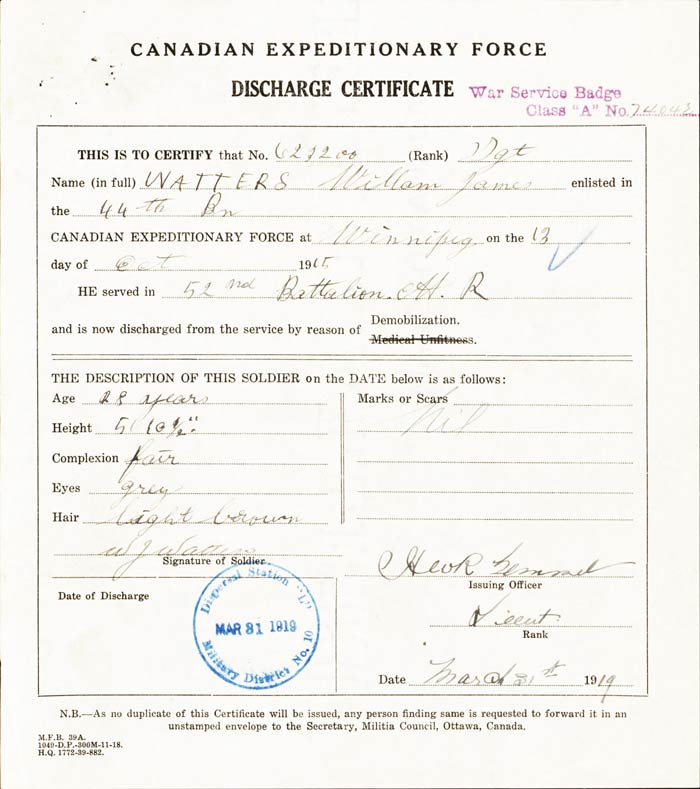 CANADIAN EXPEDITIONARY FORCE
DISCHARGE CERTIFICATE War Service Badge
Class "A" No.
THIS IS TO CERTIFY that No. (Rank) Sgt
Name (in full) WATTERS William James enlisted in
the 44th Bn
CANADIAN EXPEDITIONARY FORCE at Winnipeg on the 13
day of Oct 1915
HE served in 52nd Battalion
and is now discharged from the service by reason of Demobilization.
Medical Unfitness.
THE DESCRIPTION OF THIS SOLDIER on the DATE below is as follows:
Age 28 years
Height 5' 10½"
Complexion fair
Eyes grey
Hair light brown
W J Watters
Signature of Soldier
Marks or Scars
Nil
Issuing Officer
Lieut
Rank
Date of Discharge
Dispersal Station "L"
MAR 31 1919
Military District No. 10
Date March 31st 1919
N.B.—As no duplicate of this Certificate will be issued, any person finding same is requested to forward it in an
unstamped envelope to the Secretary, Militia Council, Ottawa, Canada.
M.F.B. 39A.
1049-D.P.-300M-11-18.
H.Q. 1772-39-882.